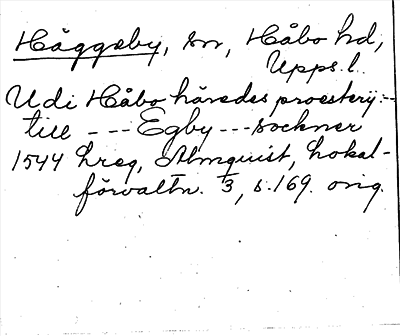 Häggeby, sn, Håbo hd,
Upps. l.
Udi Håbo häredes proesterij:-
till --- Egby --- sockner
1544 Lreg, Almquist, Lokal-
förvaltn. 3, s. 169. orig.